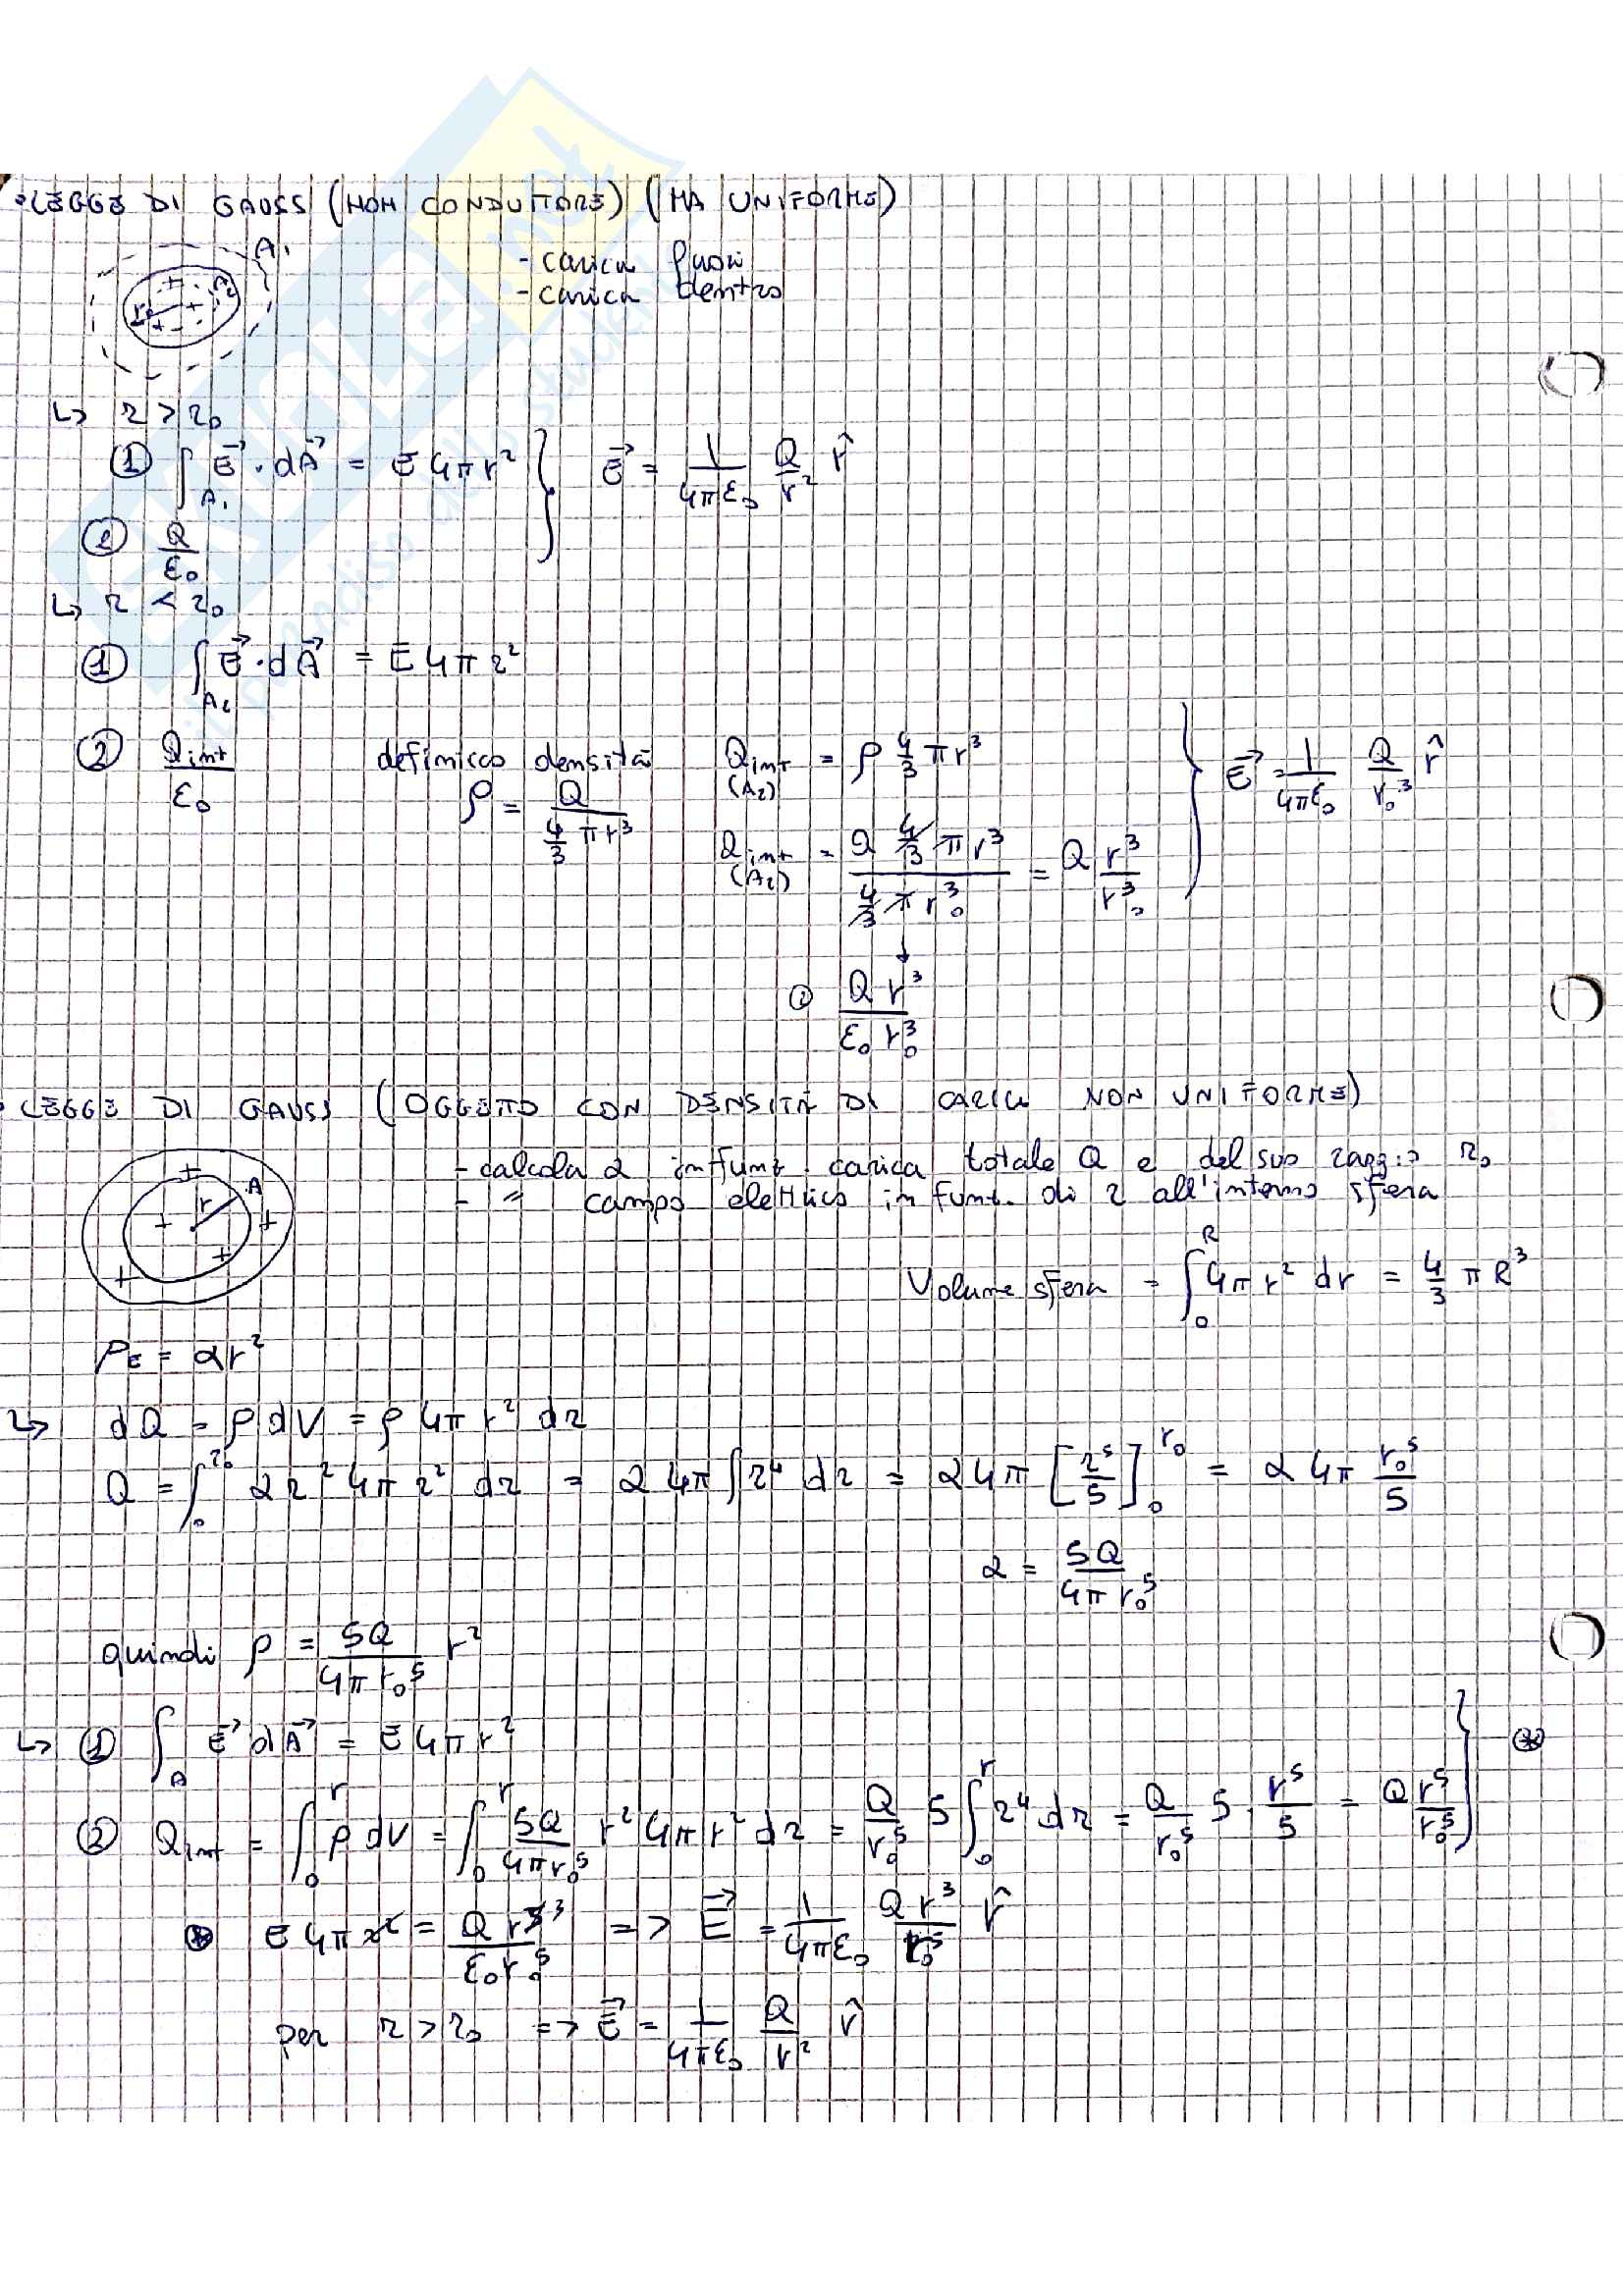 •LEGGE DI GAUSS (NON CONDUTTORE) (MA UNIFORME)
A₁
- carica fuori
- carica dentro
A₂
r₀
↳ r > r₀
① ∫_A₁ E⃗ · dA⃗ = E 4π r² } E⃗ = 1/(4πε₀) Q/r² r̂
② Q/ε₀
↳ r < r₀
① ∫_A₂ E⃗ · dA⃗ = E 4π r²
② Qint/ε₀ definisco densità Qint (A₂) = ρ 4/3 π r³ } E⃗ = 1/(4πε₀) Q/r₀³ r̂
ρ = Q/(4/3 π r³)
Qint (A₂) = Q 4/3 π r³ / (4/3 π r₀³) = Q r³/r₀³
↓
② Q r³/(ε₀ r₀³)
• LEGGE DI GAUSS (OGGETTO CON DENSITÀ DI CARICA NON UNIFORME)
- calcola α in funz. carica totale Q e del suo raggio r₀
- " campo elettrico in funz. di r all'interno sfera
r A
Volume sfera = ∫₀^R 4π r² dr = 4/3 π R³
ρE = αr²
↳ dQ = ρ dV = ρ 4π r² dr
Q = ∫₀^r₀ α r² 4π r² dr = α 4π ∫ r⁴ dr = α 4π [r⁵/5]₀^r₀ = α 4π r₀⁵/5
α = 5Q/(4π r₀⁵)
quindi ρ = 5Q/(4π r₀⁵) r²
↳ ① ∫_A E⃗ dA⃗ = E 4π r² } ⊛
② Qint = ∫₀^r ρ dV = ∫₀^r 5Q/(4π r₀⁵) r² 4π r² dr = Q/r₀⁵ 5 ∫₀^r r⁴ dr = Q/r₀⁵ 5 · r⁵/5 = Q r⁵/r₀⁵
⊛ E 4π r² = Q r⁵ ³/(ε₀ r₀⁵) => E⃗ = 1/(4πε₀) Q r³/r₀⁵ r̂
per r > r₀ => E⃗ = 1/(4πε₀) Q/r² r̂